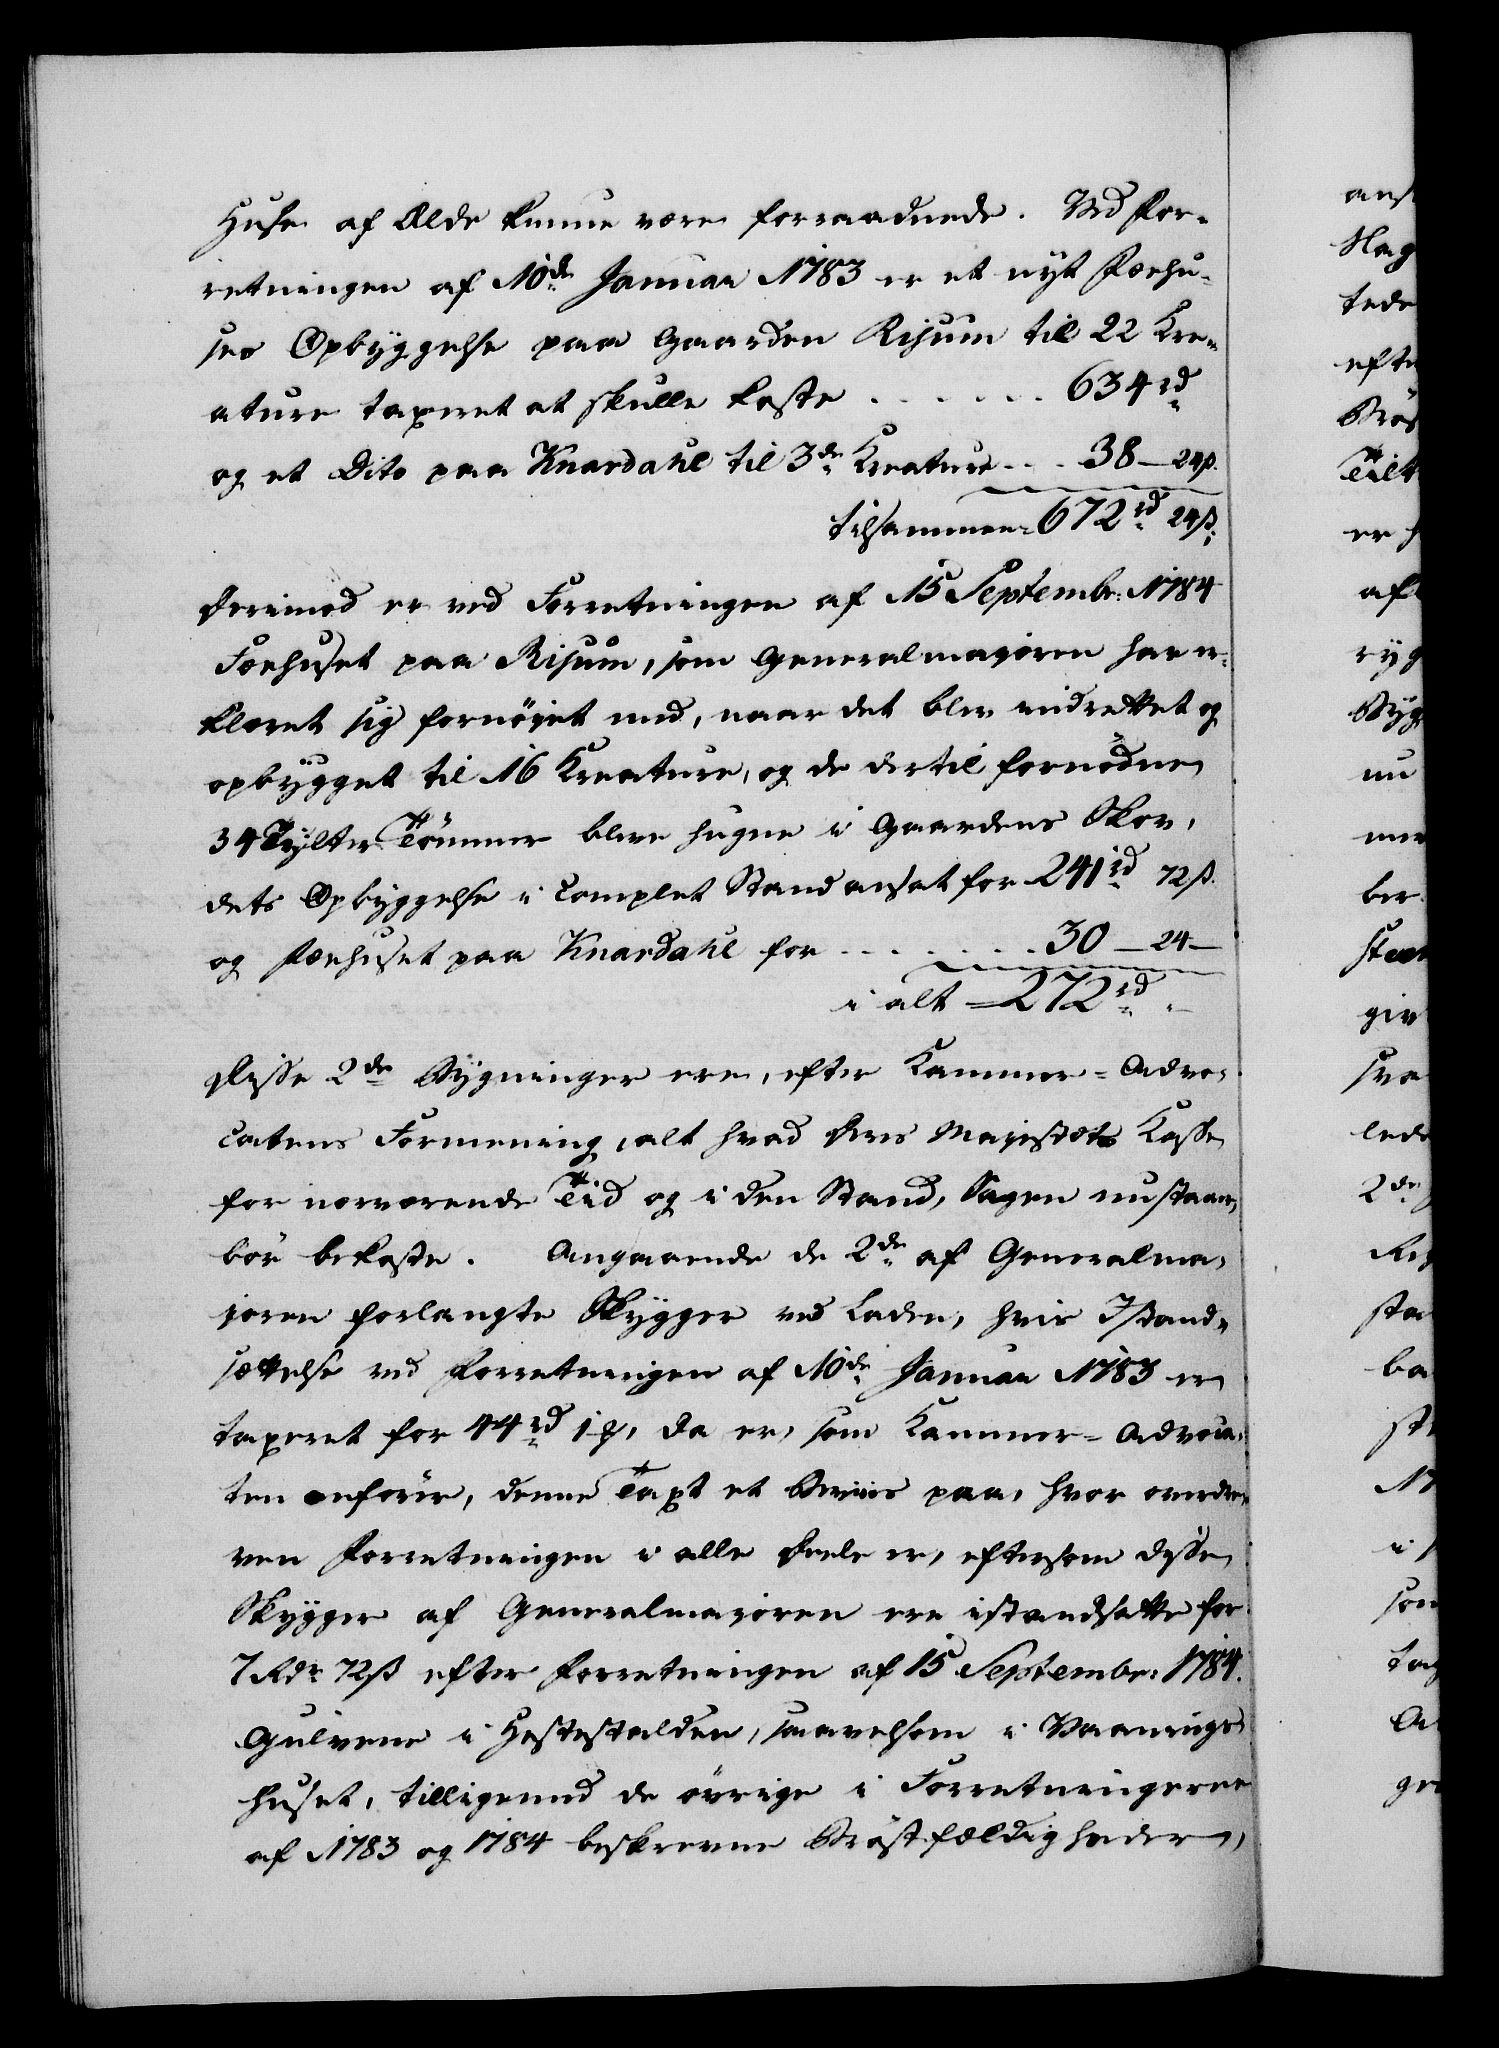 Huse af Ælde kunne være forraadnede. Ved For-
retningen af 10de Januar 1783 er et nyt Fæehu-
ses Opbyggelse paa Gaarden Risum til 22 Kre-
ature taxeret at skulle koste . . . . . . 634 rd
og et Dito paa Knardahl til 3de Kreature . . . 38 — 24 ß.
tilsammen = 672 rd 24 ß.
Derimod er ved Forretningen af 15 Septembr: 1784
Fæehuset paa Risum, som Generalmajoren har er-
klæret sig fornöjet med, naar det blev indrettet og
opbygget til 16 Kreature, og de dertil fornödne
34 Tylter Tömmer bleve hugne i Gaardens Skov,
dets Opbyggelse i complet Stand ansat for 241 rd 72 ß.
og Fæehuset paa Knardahl for . . . . . . . 30 — 24 —
i alt = 272 rd "
Disse 2de Bygninger ere, efter Kammer-Advo-
catens Formening, alt hvad Deres Majestæts Kasse
for nærværende Tid og i den Stand, Sagen nu staaer,
bör bekoste. Angaaende de 2de af Generalma-
joren forlangte Skygger ved Laden, hvis Istand-
sættelse ved Forretningen af 10de Januar 1783 er
taxeret for 44 rd 1 ß, da er, som Kammer-Advoca-
ten anförer, denne Taxt et Beviis paa, hvor overdre-
ven Forretningen i alle Deele er, eftersom disse
Skygger af Generalmajoren ere istandsatte for
7 Rdr 72 ß efter Forretningen af 15 Septembr: 1784.
Gulvene i Hestestalden, saavelsom i Vaanings
huset, tilligemed de övrige i Forretningerne
af 1783 og 1784 beskrevne Bröstfældigheder,